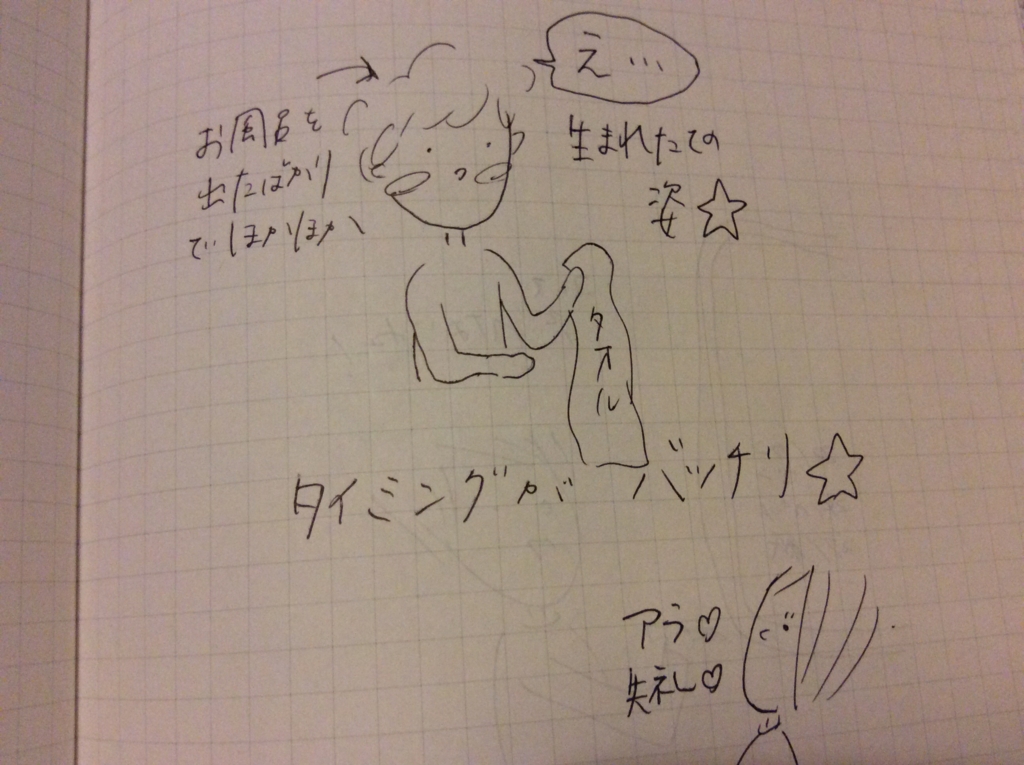 え…
お風呂を
出たばかり
でほかほか
生まれたての
姿☆
タオル
タイミングが バッチリ☆
アラ♡
失礼♡